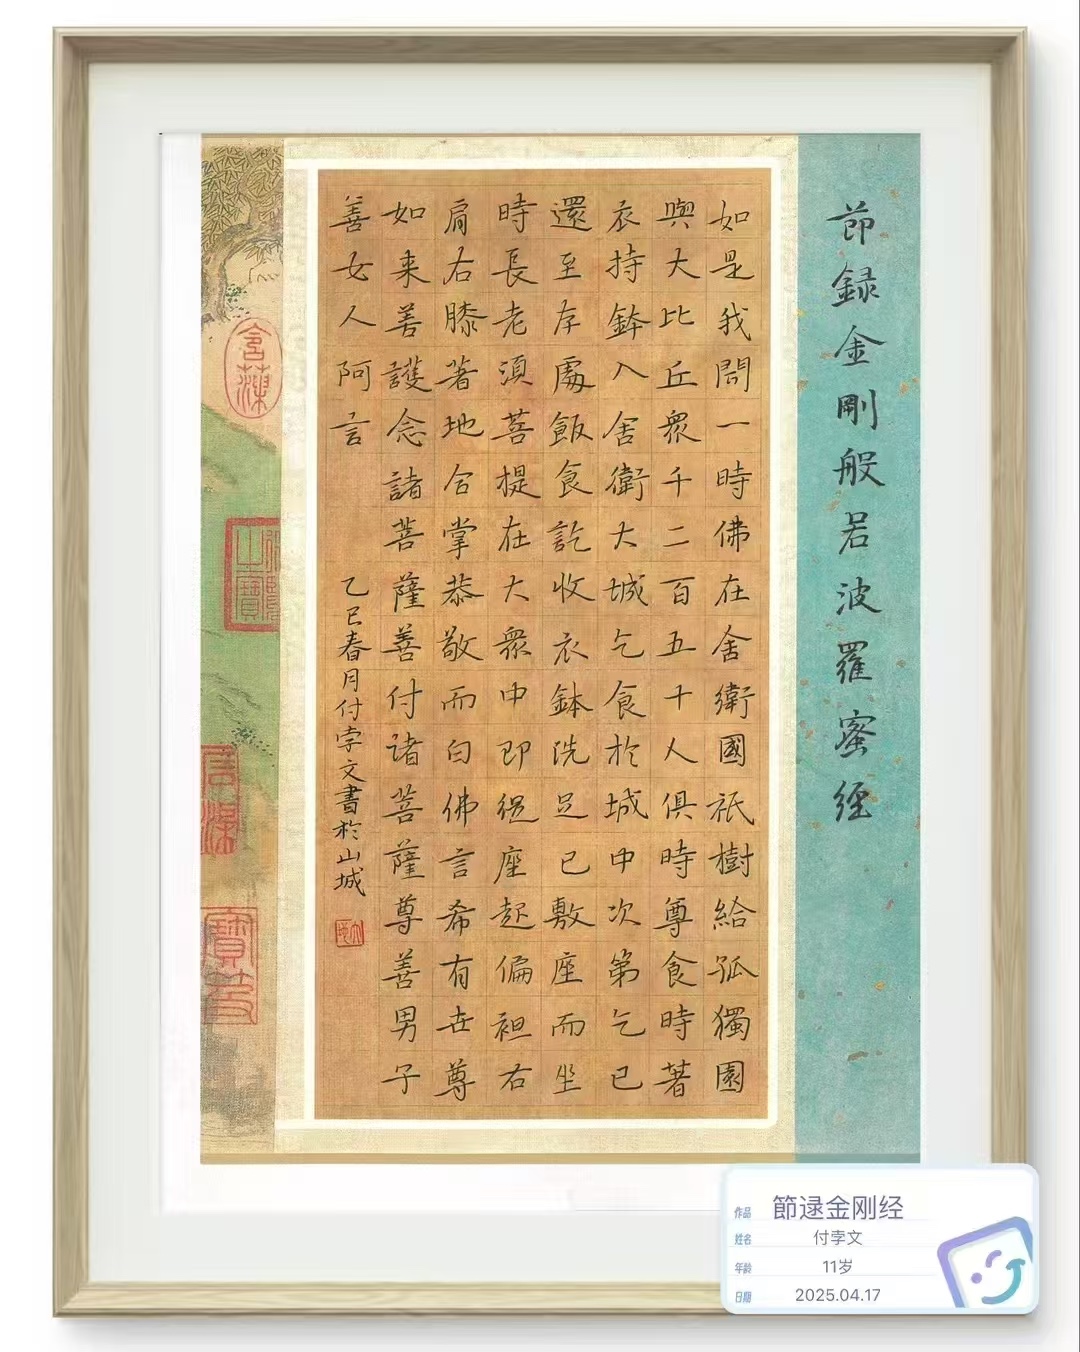 節録金剛般若波羅蜜經
如是我聞一時佛在舍衛國祇樹給孤獨園
與大比丘眾千二百五十人俱時尊食時著
衣持鉢入舍衛大城乞食於城中次第乞已
還至存處飯食訖收衣鉢洗足已敷座而坐
時長老須菩提在大眾中即從座起偏袒右
肩右膝著地合掌恭敬而白佛言希有世尊
如来善護念諸菩薩善付諸菩薩尊善男子
善女人阿言
乙巳春月付孛文書於山城
作品 節逯金刚经
姓名 付孛文
年龄 11岁
日期 2025.04.17